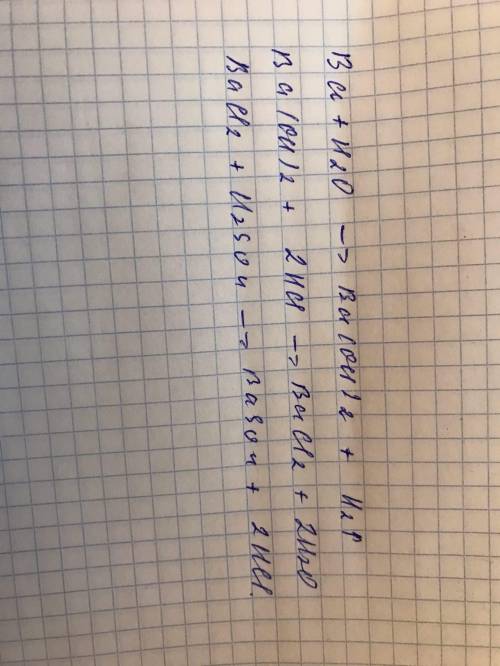 Ba + H₂O -> Ba(OH)₂ + H₂↑
Ba(OH)₂ + 2HCl -> BaCl₂ + 2H₂O
BaCl₂ + H₂SO₄ -> BaSO₄ + 2HCl.